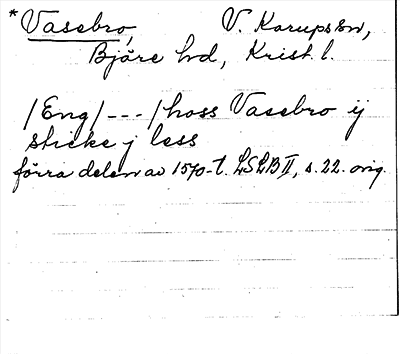 *Vasebro, V. Karups sn,
Bjäre hd, Krist. l.
/Eng/ --- / hoss Vasebro ij
sticke j less
förra delen av 1570-t. LSLB II, s. 22. orig.